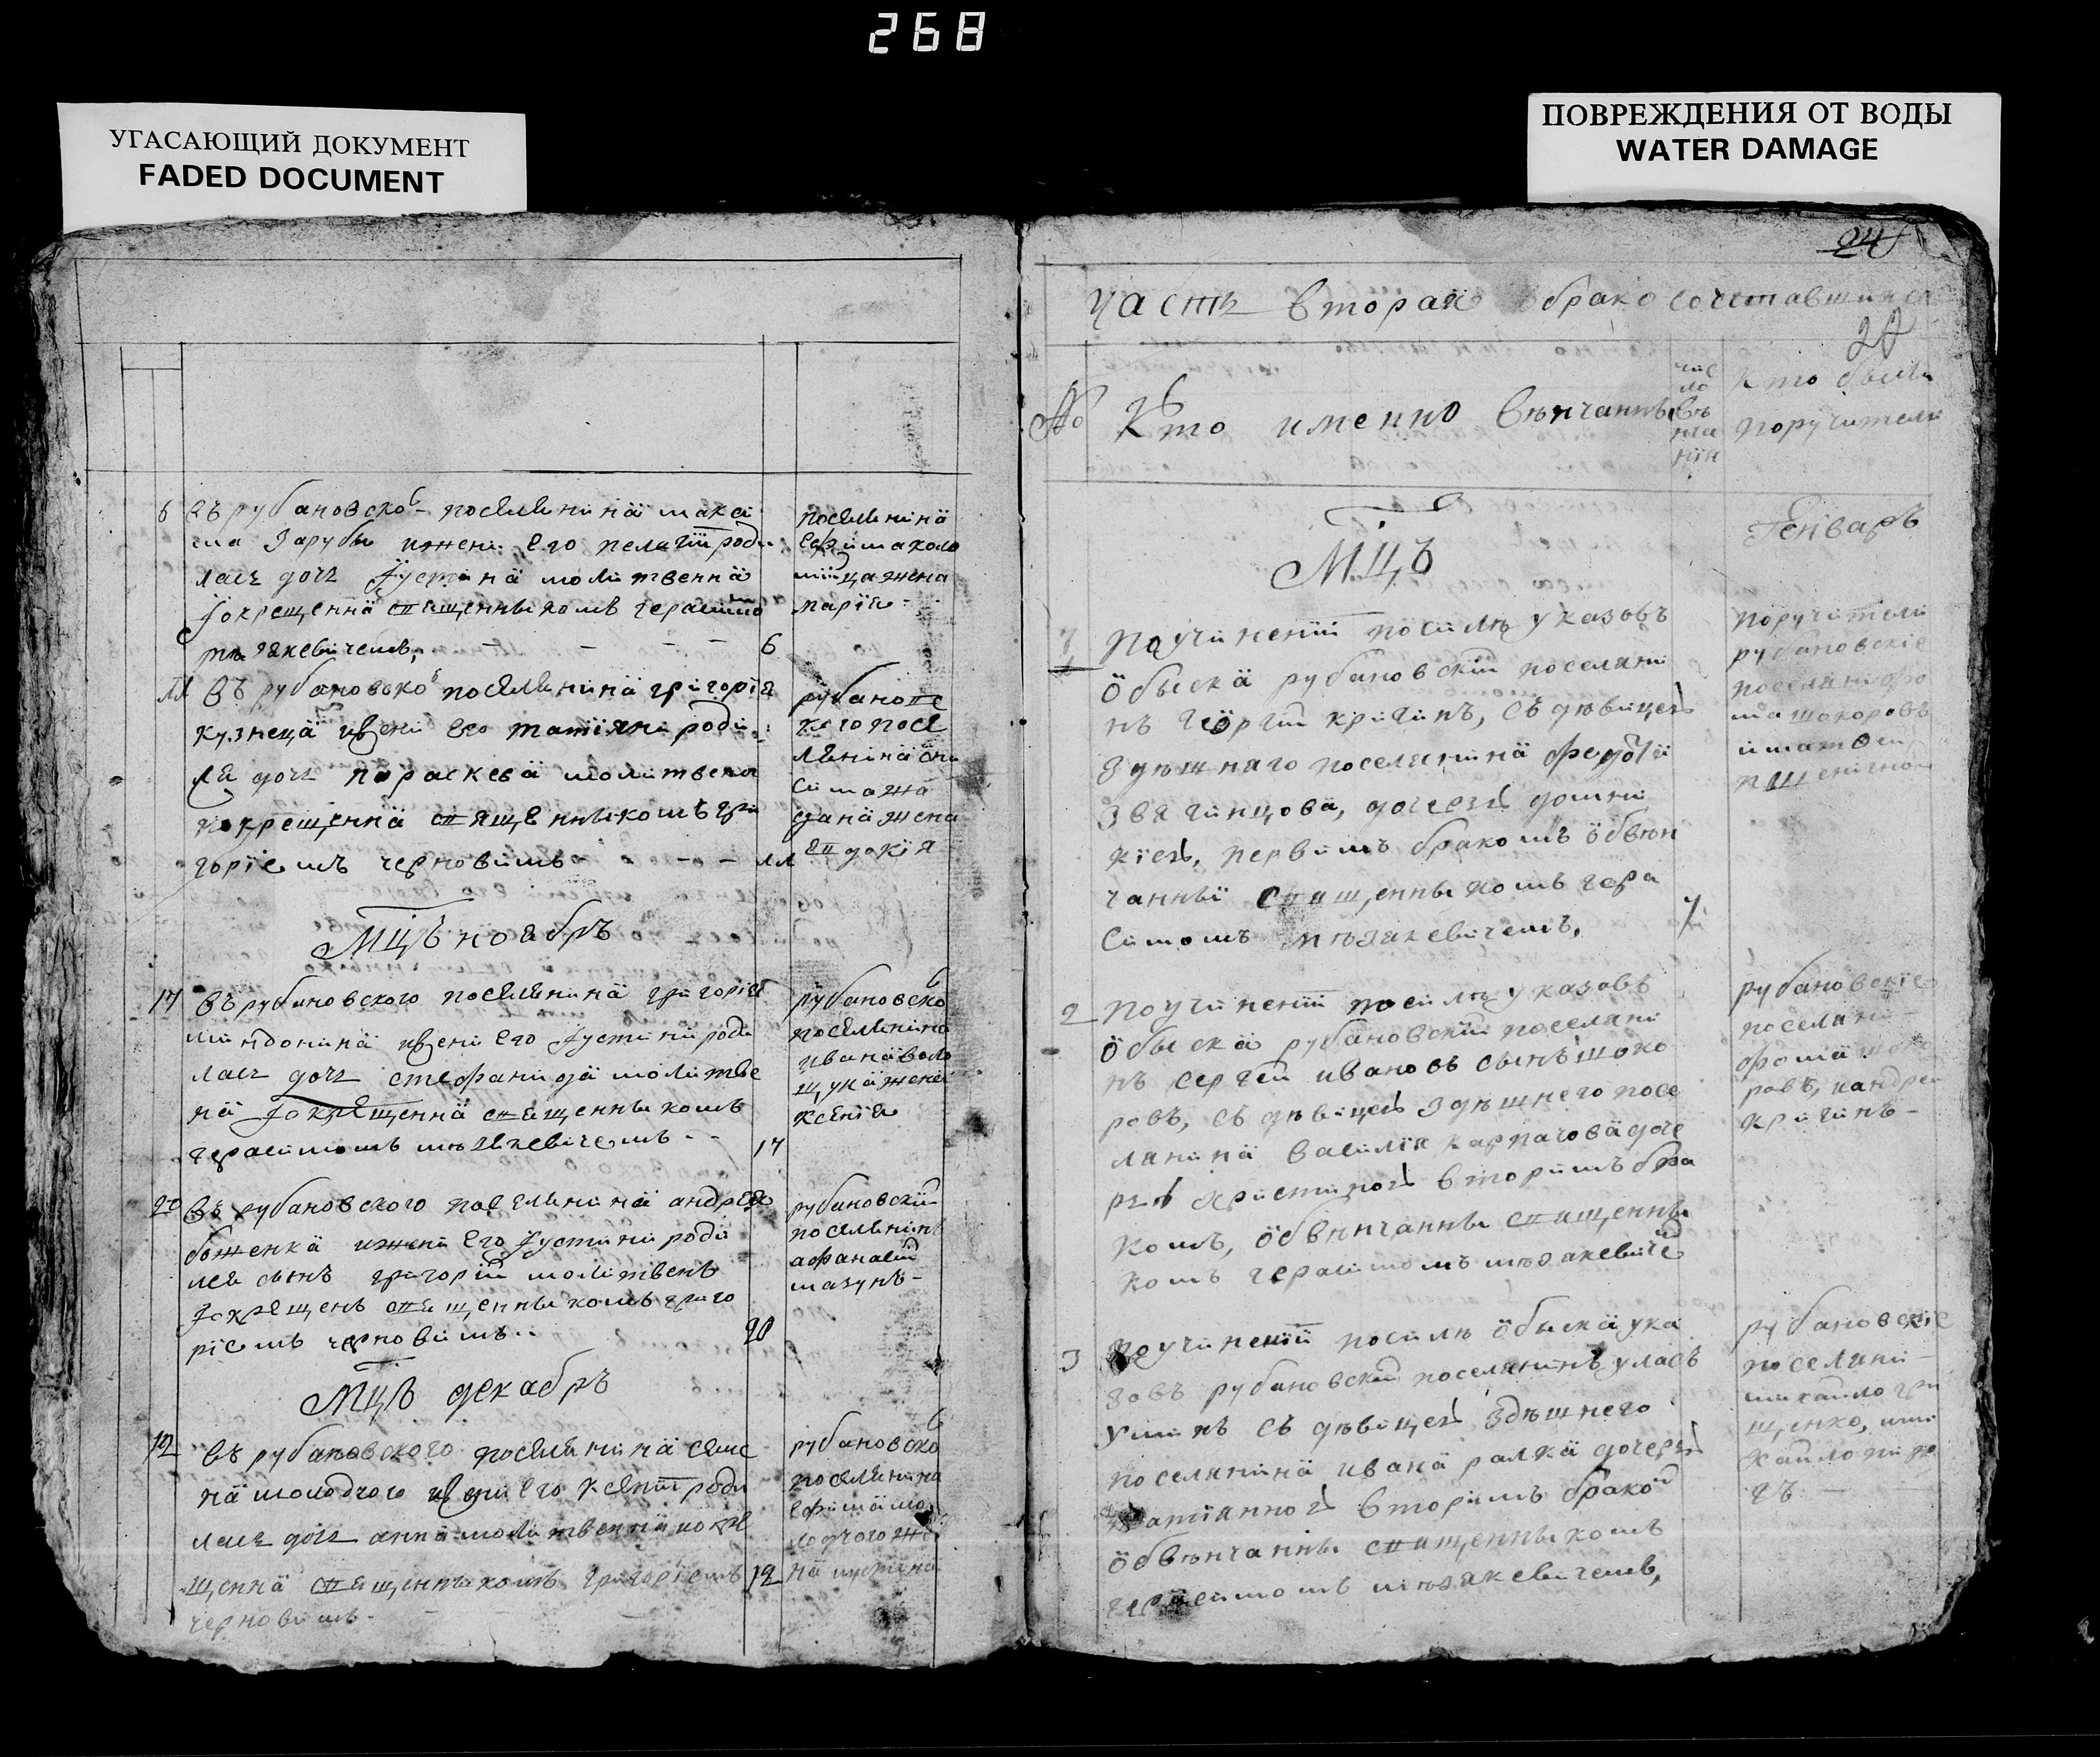 268
УГАСАЮЩИЙ ДОКУМЕНТ
FADED DOCUMENT
ПОВРЕЖДЕНИЯ ОТ ВОДЫ
WATER DAMAGE
6 въ рубановско поселянина макси
ма Зарубы ижени его пелагіи роди
лась дочь Іустина молитвенна
Іокрещенна священникомъ герасимо
мъ мязакевичемъ 6
поселянина
ефима коло
мійца жена
марія
въ рубановско поселянина григорія
кузнеца ижени его татіяни роди
ля дочь параскева молитвена
и окрещенна священникомъ гри
горіемъ черновимъ
рубановс
кого посе
лянина они
сима
жена
евдокія
Мцъ ноябръ
17 въ рубановского поселянина григорія
миндонина ижени его Іустини роди
лась дочь стефанида молитве
на Іокрещенна священникомъ
герасимомъ мязакевичемъ 17
рубановско
поселянина
ивана воло
щука жена
ксенія
20 въ рубановского поселянина андрея
боженка ижени его Іустини роди
лся сынъ григорій молитвенъ
Іокрещенъ священникомъ григо
ріемъ черновимъ 20
рубановскій
поселянинъ
афанасій
мазунъ
Мцъ декабръ
12 въ рубановского поселянина семе
на молодчого ижени его ксеніи роди
лась дочь анна молитвенна иокре
щенна священникомъ григоріемъ 12
черновимъ
рубановско
поселянина
ефима мо
лодчого же
на иустина
24
часть вторая о бракосочетавшихся
27
№ Кто именно венчанны
чис
ло
вѣ
нча
нія
Кто были
поручители
Мцъ
Генваръ
1 По учиненіи посилѣ указовъ
обыска рубановскій поселяни
нъ геѡргій кригинъ, съ дѣвицею
здѣшнаго поселянина федота
звягинцова, дочерю домни
кіею, первимъ бракомъ обвѣн
чанны священникомъ гера
симомъ мязакевичемъ,
поручители
рубановскіе
поселяни фо
ма шокоровъ
и
пшенични
2 По учиненіи посилѣ указовъ
обыска рубановскій поселяни
нъ сергей ивановъ сынъ шоко
ровъ, съ дѣвицею здѣшнего посе
лянина василія карпачова доче
рью христиною вторимъ бра
комъ, обвѣнчанны священны
комъ герасимомъ мязакевиче
рубановскіе
поселяни
фома шоко
ровъ, иандрей
кригинъ
3 По учиненіи посилѣ обыска ука
зовъ рубановскій поселянинъ уласъ
съ дѣвицею здѣшнего
поселянина ивана ралка дочерю
татіанною вторимъ брако
обвѣнчанны священникомъ
герасимомъ мязакевичемъ,
рубановскіе
поселяни
михайло гри
щенко, ими
хайло